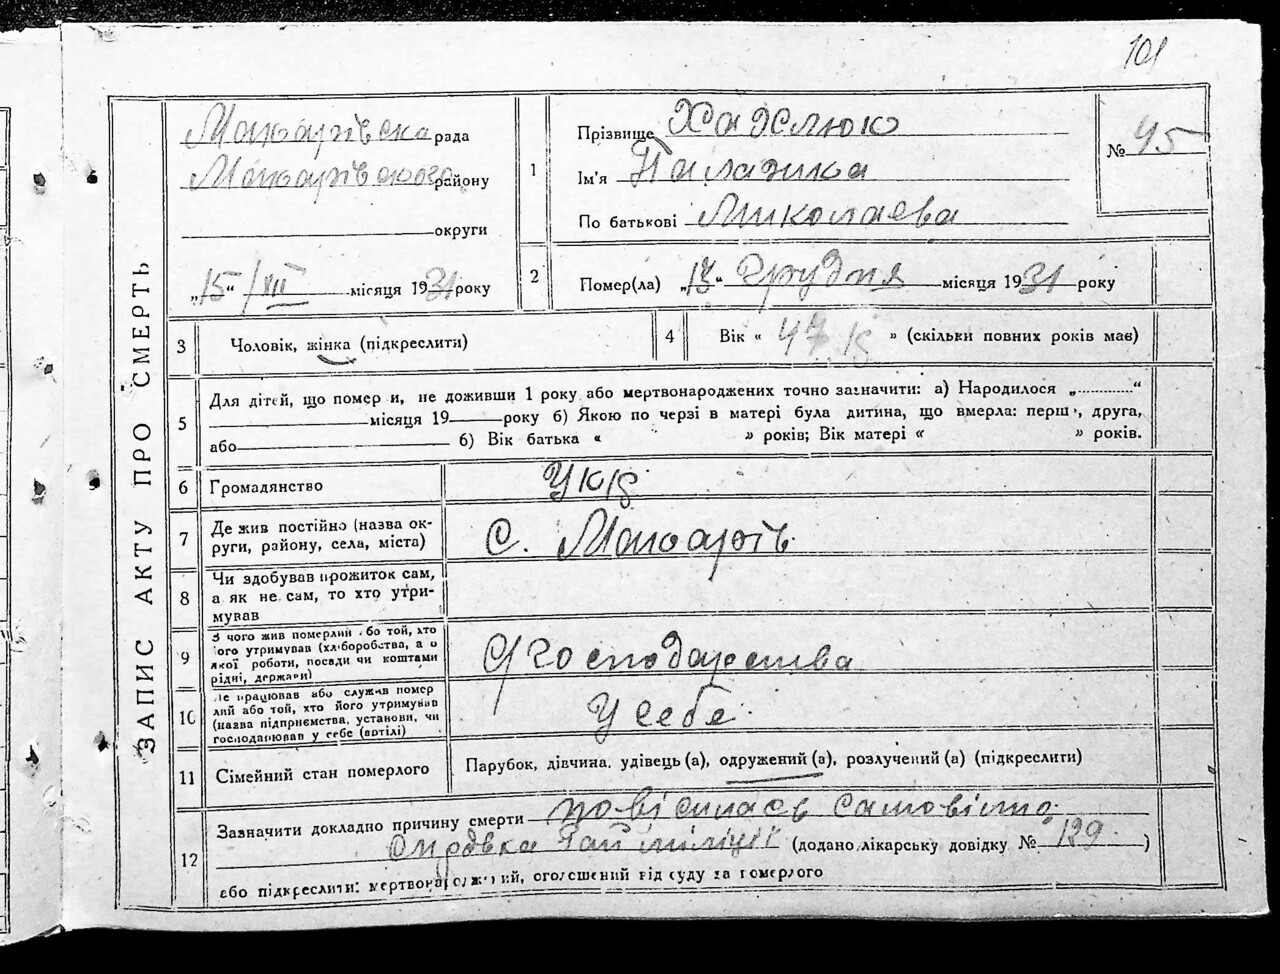 101
ЗАПИС АКТУ ПРО СМЕРТЬ
Макарівска рада
Макарівского району
округи
„15“ /XII місяця 1931 року
1
Прізвище Хажлюк
Ім'я
По батькові Миколаєва
№ 45
2
Помер(ла) „13“ грудня місяця 1931 року
3
Чоловік, жінка (підкреслити)
4
Вік « 47 р » (скільки повних років має)
5
Для дітей, що померли, не доживши 1 року або мертвонароджених точно зазначити: а) Народилося „...........“
місяця 19 року б) Якою по черзі в матері була дитина, що вмерла: перша, друга,
або б) Вік батька « » років; Вік матері « » років.
6
Громадянство
Укр
7
Де жив постійно (назва ок-
руги, району, села, міста)
с. Макарів
8
Чи здобував прожиток сам,
а як не сам, то хто утри-
мував
9
З чого жив померлий або той, хто
його утримував (хліборобства, а о
якої роботи, посади чи коштами
рідні, держави)
Сг господарства
10
Де працював або служив помер
лий або той, хто його утримував
(назва підприємства, установи, чи
господарював у себе (артілі)
У себе
11
Сімейний стан померлого
Парубок, дівчина, удівець (а), одружений (а), розлучений (а) (підкреслити)
12
Зазначити докладно причину смерти повісилась самовільно
Рай міліції (додано лікарську довідку № 129 )
або підкреслити: мертвонароджений, оголошений від суду за померлого